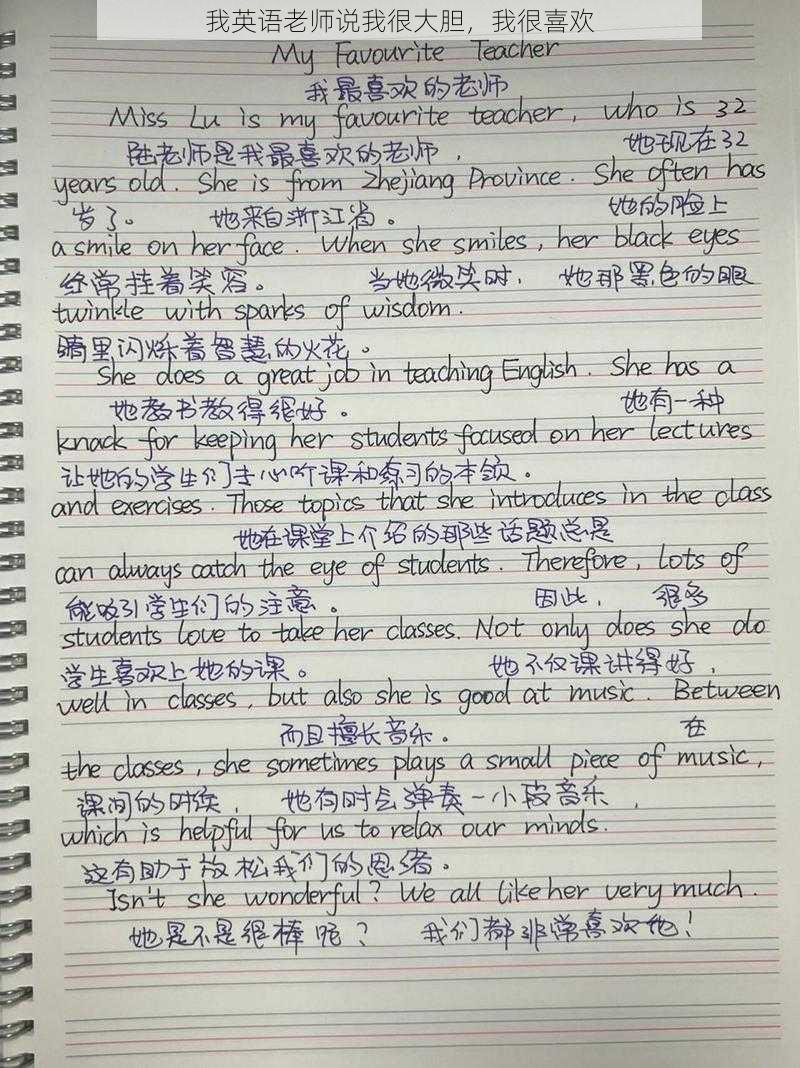 我英语老师说我很大胆，我很喜欢
My Favourite Teacher
我最喜欢的老师
Miss Lu is my favourite teacher, who is 32
陆老师是我最喜欢的老师， 她现在32
years old. She is from Zhejiang Province. She often has
岁了。 她来自浙江省。 她的脸上
a smile on her face. When she smiles, her black eyes
经常挂着笑容。 当她微笑时， 她那黑色的眼
twinkle with sparks of wisdom.
睛里闪烁着智慧的火花。
She does a great job in teaching English. She has a
她教书教得很好。 她有一种
knack for keeping her students focused on her lectures
让她的学生们专心听课和练习的本领。
and exercises. Those topics that she introduces in the class
她在课堂上介绍的那些话题总是
can always catch the eye of students. Therefore, lots of
能吸引学生们的注意。 因此， 很多
students love to take her classes. Not only does she do
学生喜欢上她的课。 她不仅课讲得好，
well in classes, but also she is good at music. Between
而且擅长音乐。 在
the classes, she sometimes plays a small piece of music,
课间的时候， 她有时会弹奏一小段音乐，
which is helpful for us to relax our minds.
这有助于放松我们的思绪。
Isn't she wonderful? We all like her very much.
她是不是很棒呢？ 我们都非常喜欢她！